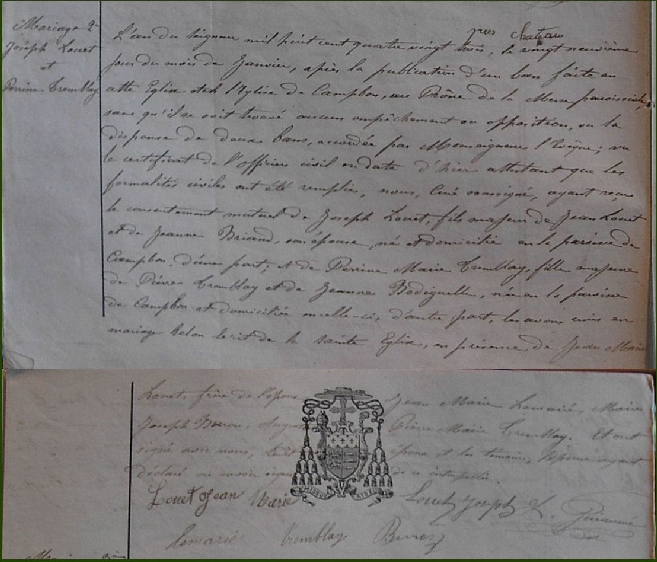 Mariage
Joseph Louet
et
Perrine Tremblay
L'an du Seigneur mil huit cent quatre vingt trois, le vingt neuvième
jour du mois de Janvier, après la publication d'un ban faite en
cette Eglise et de l'Eglise de Campbon, au Prône de la Messe paroissiale,
sans qu'il se soit trouvé aucun empêchement ou opposition, vu la
dispense de deux bans, accordée par Monseigneur l'Evêque; vu
le certificat de l'officier civil en date d'hier attestant que les
formalités civiles ont été remplies, nous, Curé soussigné, ayant reçu
le consentement mutuel de Joseph Louet, fils majeur de Jean Louet
et de Jeanne Briand, son épouse, né et domicilié en la paroisse de
Campbon, d'une part; et de Perrine Marie Tremblay, fille majeure
de Pierre Tremblay et de Jeanne, née en la paroisse
de Campbon et domiciliée en celle-ci, d'autre part, les avons unis en
mariage selon le rit de la sainte Eglise, en présence de Jean Marie
Louet, frère de l'époux Jean Marie Lemarié, Marie
Joseph Pierre Marie Tremblay. Et ont
signé avec nous, et les témoins, l'épouse ayant
déclaré ne savoir de ce interpellée.
Louet Jean Marie Louet Joseph
Lemarié Tremblay Pierre